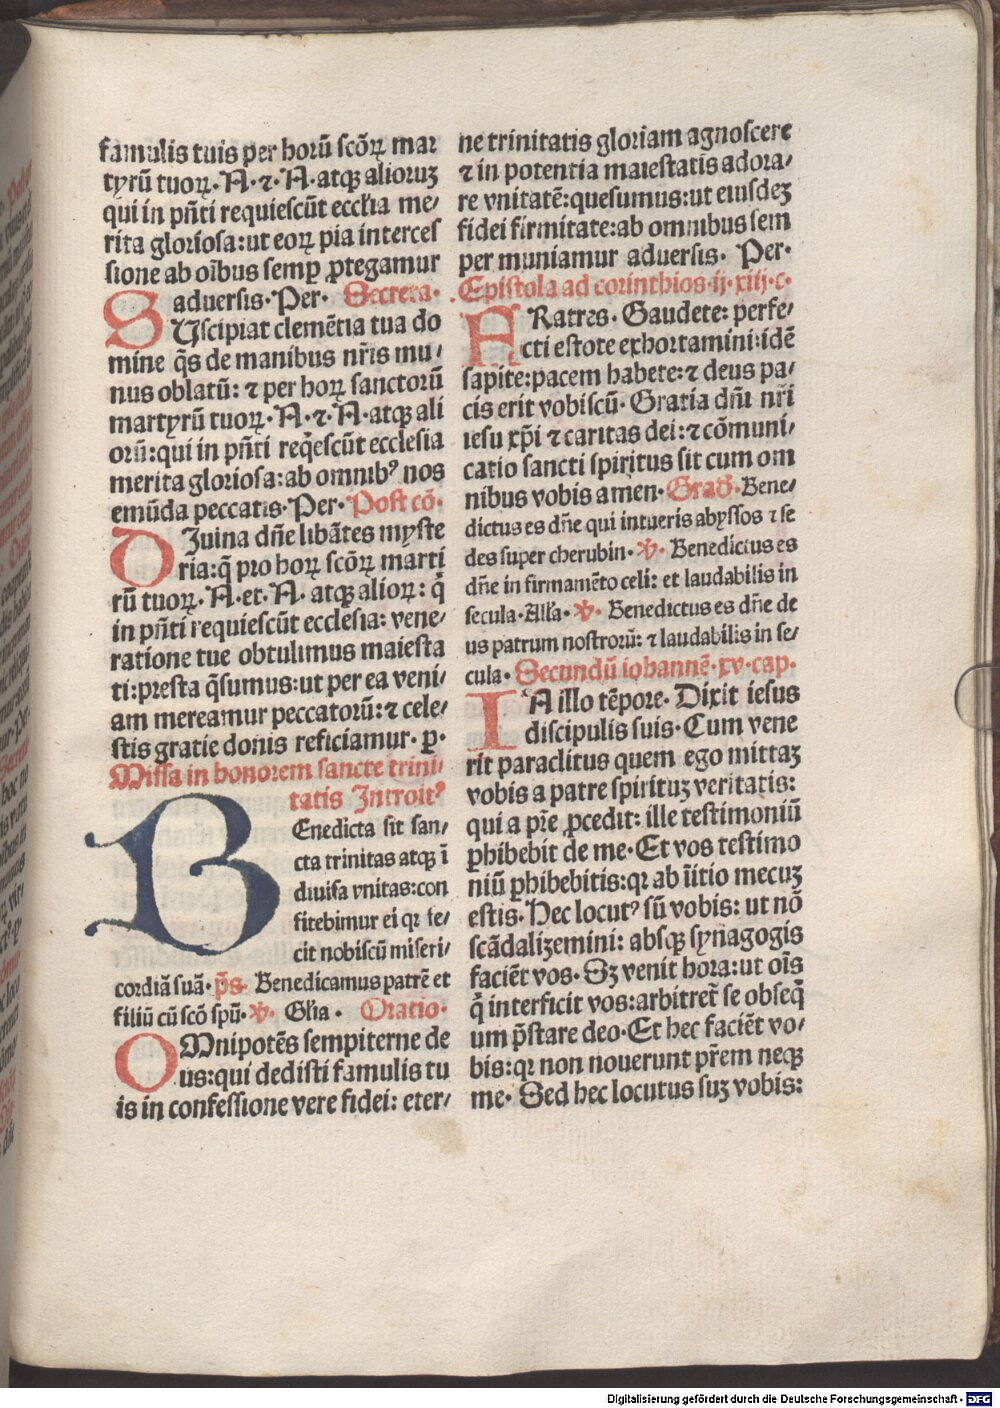 famulis tuis per horū scōꝝ mar
tyrū tuoꝝ· N· ⁊· N· atqꝫ alioruꝫ
qui in pn̄ti requiescūt eccłia me⸗
rita gloriosa: ut eoꝝ pia interces
sione ab oībus semꝑ ꝓtegamur
aduersis· Per· Secreta·
SUscipiat clemētia tua do
mine q̄s de manibus nr̄is mu⸗
nus oblatū: ⁊ per hoꝝ sanctorū
martyrū tuoꝝ· N· ⁊· N· atqꝫ ali
orū: qui in pn̄ti reqͥescūt ecclesia
merita gloriosa: ab omnibꝰ nos
emūda peccatis· Per· Post cō·
DIuina dn̄e libātes myste
ria: q̄ pro hoꝝ scōꝝ marti
rū tuoꝝ· N· et· N· atqꝫ alioꝝ: qͥ
in pn̄ti requiescūt ecclesia: vene⸗
ratione tue obtulimus maiesta
ti: presta q̄sumus: ut per ea veni⸗
am mereamur peccatorū: ⁊ cele⸗
stis gratie donis reficiamur· ꝑ·
Missa in honorem sancte trini⸗
tatis Introitꝰ
BEnedicta sit san⸗
cta trinitas atqꝫ ī
diuisa vnitas: con
fitebimur ei qꝛ fe⸗
cit nobiscū miseri⸗
cordiā suā· p̄s· Benedicamus patrē et
filiū cū scō spū· ℣· Glīa· Oratio·
OMnipotēs sempiterne de
us: qui dedisti famulis tu
is in confessione vere fidei: eter⸗
ne trinitatis gloriam agnoscere
⁊ in potentia maiestatis adora⸗
re vnitatē: quesumus: ut eiusdeꝫ
fidei firmitate: ab omnibus sem
per muniamur aduersis· Per·
Epistola ad corinthios· ij· xiij· c·
FRatres· Gaudete: perfe⸗
cti estote exhortamini: idē
sapite: pacem habete: ⁊ deus pa⸗
cis erit vobiscū· Gratia dn̄i nr̄i
iesu xp̄i ⁊ caritas dei: ⁊ cōmuni⸗
catio sancti spiritus sit cum om
nibus vobis amen· Grad̄· Bene⸗
dictus es dn̄e qui intueris abyssos ⁊ se
des super cherubin· ℣· Benedictus es
dn̄e in firmamēto celi: et laudabilis in
secula· Ałła· ℣· Benedictus es dn̄e de
us patrum nostrorū: ⁊ laudabilis in se⸗
cula· Secundū iohannē· xv· cap·
IN illo tēpore· Dixit iesus
discipulis suis· Cum vene
rit paraclitus quem ego mittaꝫ
vobis a patre spirituꝫ veritatis:
qui a pr̄e ꝓcedit: ille testimoniū
ꝑhibebit de me· Et vos testimo
niū ꝑhibebitis: qꝛ ab īitio mecuꝫ
estis· Hec locutꝰ sū vobis: ut nō
scādalizemini: absqꝫ synagogis
faciēt vos· Sꝫ venit hora: ut oīs
qͥ interficit vos: arbitret̄ se obseqͥ
um p̄stare deo· Et hec faciēt vo⸗
bis: qꝛ non nouerunt pr̄em neqꝫ
me· Sed hec locutus suꝫ vobis:
Digitalisierung gefördert durch die Deutsche Forschungsgemeinschaft - DFG